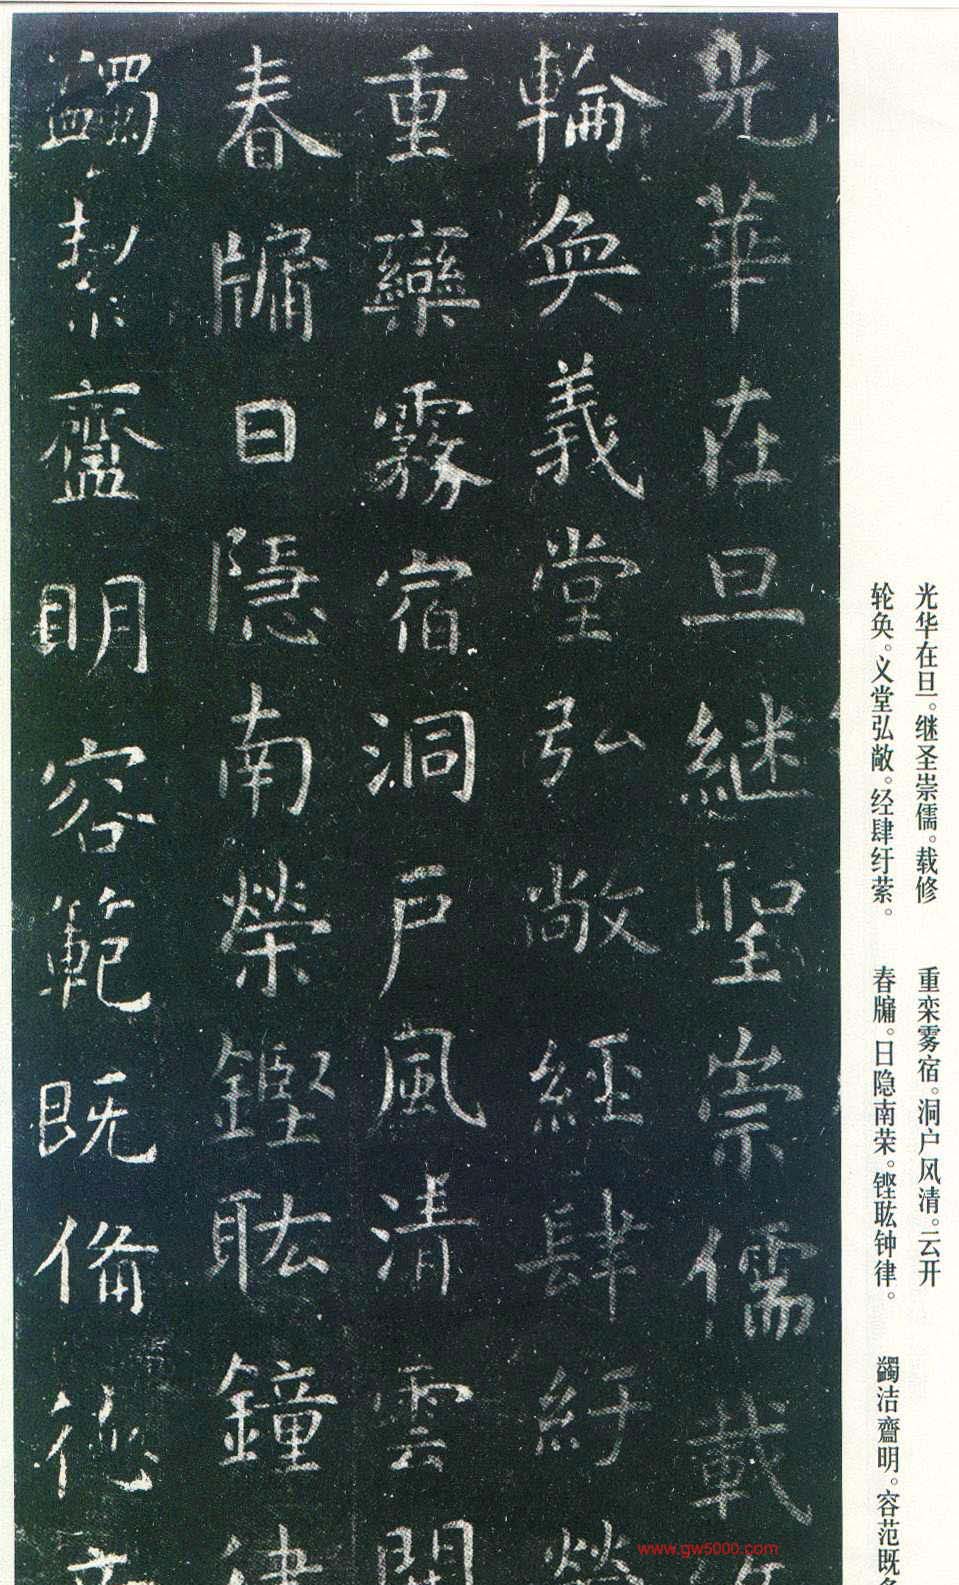 光華在旦継聖崇儒載
輪奐義堂弘敞經肆紆縈
重欒霧宿洞戶風清雲開
春牗日隱南榮鏗耾鐘律
蠲絜齍明容範既俻德
光华在旦。继圣崇儒。载修
轮奂。义堂弘敞。经肆纡萦。
重栾雾宿。洞户风清。云开
春牗。日隐南荣。铿耾钟律。
蠲洁齍明。容范既
www.gw5000.com